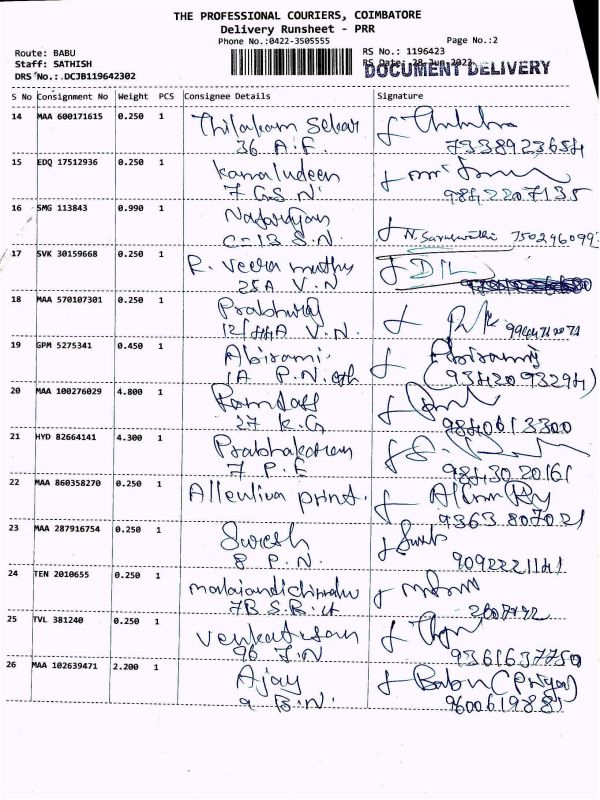 THE PROFESSIONAL COURIERS, COIMBATORE
Delivery Runsheet - PRR
Phone No.:0422-3505555
Page No.:2
Route: BABU
RS No.: 1196423
Staff: SATHISH
RS Date: 28-Jun-2023
DOCUMENT DELIVERY
DRS No.:.DCJB119642302
S No Consignment No Weight PCS Consignee Details Signature
14 MAA 600171615 0.250 1 Thilakam Sekar
36 A.F. 7338923654
15 EDQ 17512936 0.250 1 kamaludeen
7 G.S N. 9842207135
16 SMG 113843 0.990 1 Nagarajan
C-13 S.N. N. Saraswathi
17 SVK 30159668 0.250 1 R. Veera muthu
25A V.N
18 MAA 570107301 0.250 1 Prabhuraj
12/44A V.N.
19 GPM 5275341 0.450 1 Abirami. Abirami
1A P.N. (9342093294)
20 MAA 100276029 4.800 1 Ramdass
27 K.G 9840613300
21 HYD 82664141 4.300 1 Prabhakaran
7 P.E 9843020161
22 MAA 860358270 0.250 1 Alleuliva print.
9363807021
23 MAA 287916754 0.250 1 Suresh
8 P.N. 9092221141
24 TEN 2010655 0.250 1
7B S.R.
25 TVL 381240 0.250 1 Venkatesan
96 J.N 9361637750
26 MAA 102639471 2.200 1 Ajay Babu (Priya)
9 B.N. 9600619881